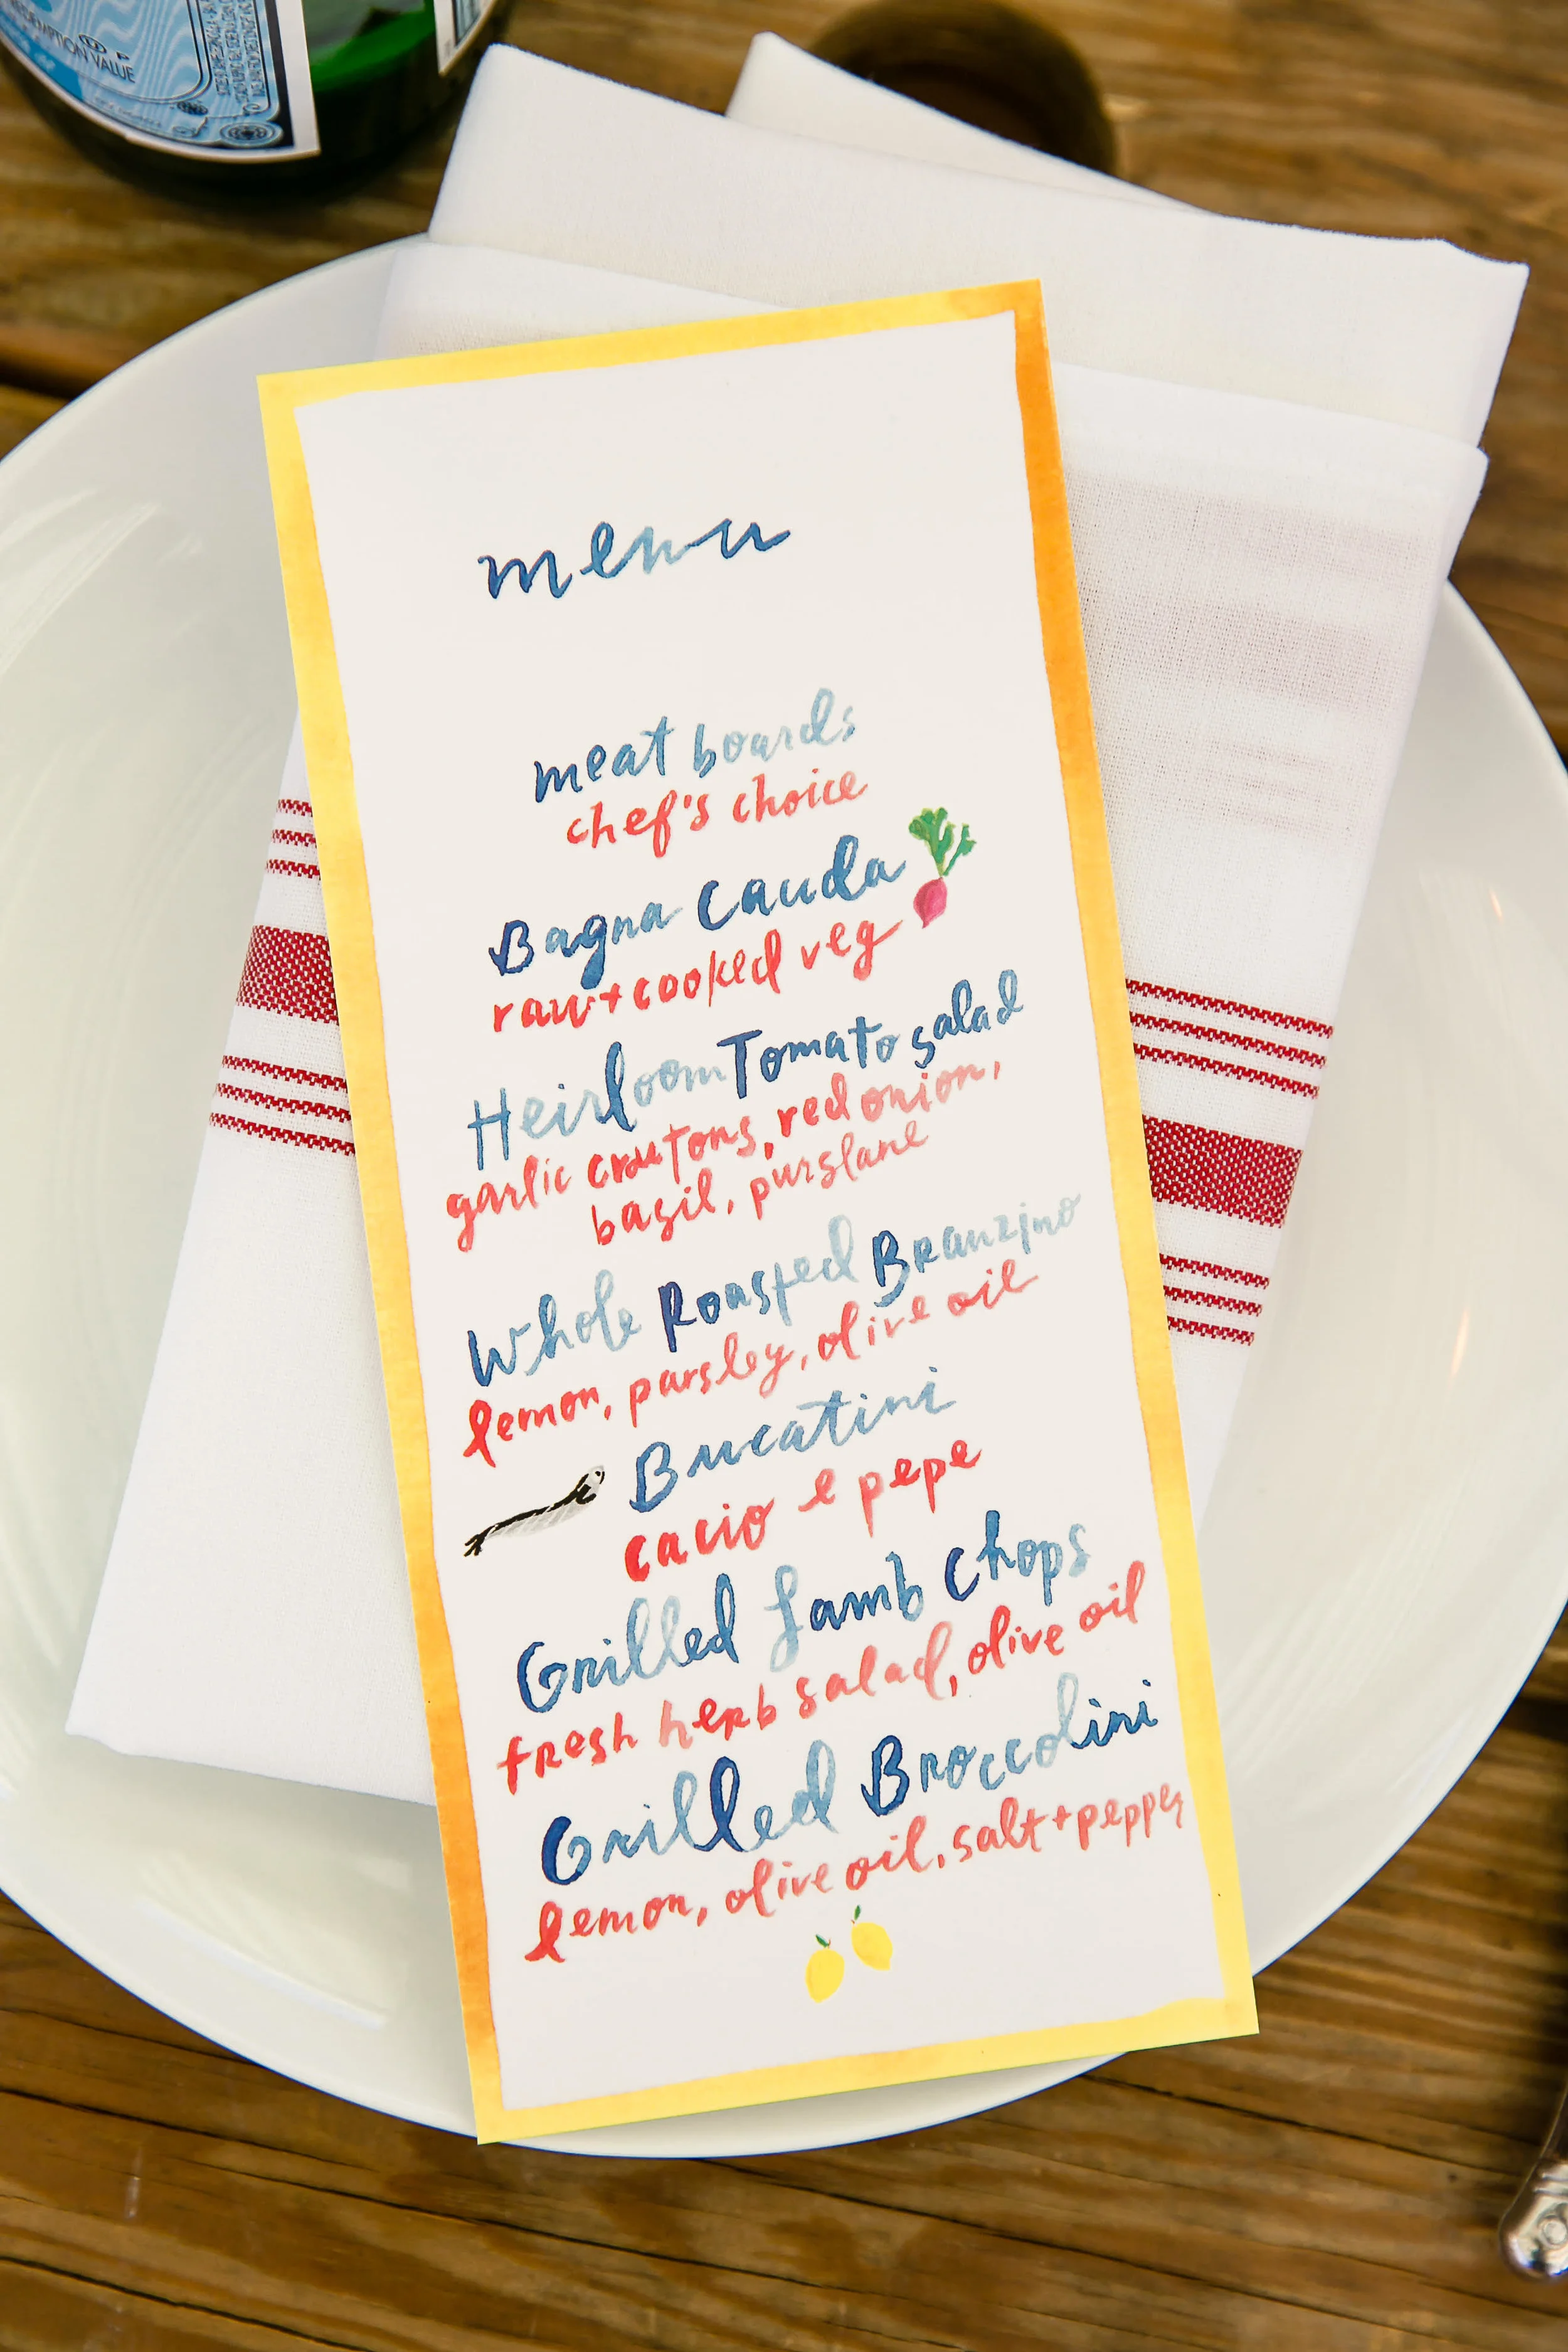 REDEMPTION VALUE
menu
meat boards
chef's choice
Bagna Cauda
raw + cooked veg
Heirloom Tomato salad
garlic croutons, red onion,
basil, purslane
Whole Roasted Branzino
lemon, parsley, olive oil
Bucatini
cacio e pepe
Grilled Lamb Chops
fresh herb salad, olive oil
Grilled Broccolini
lemon, olive oil, salt + pepper